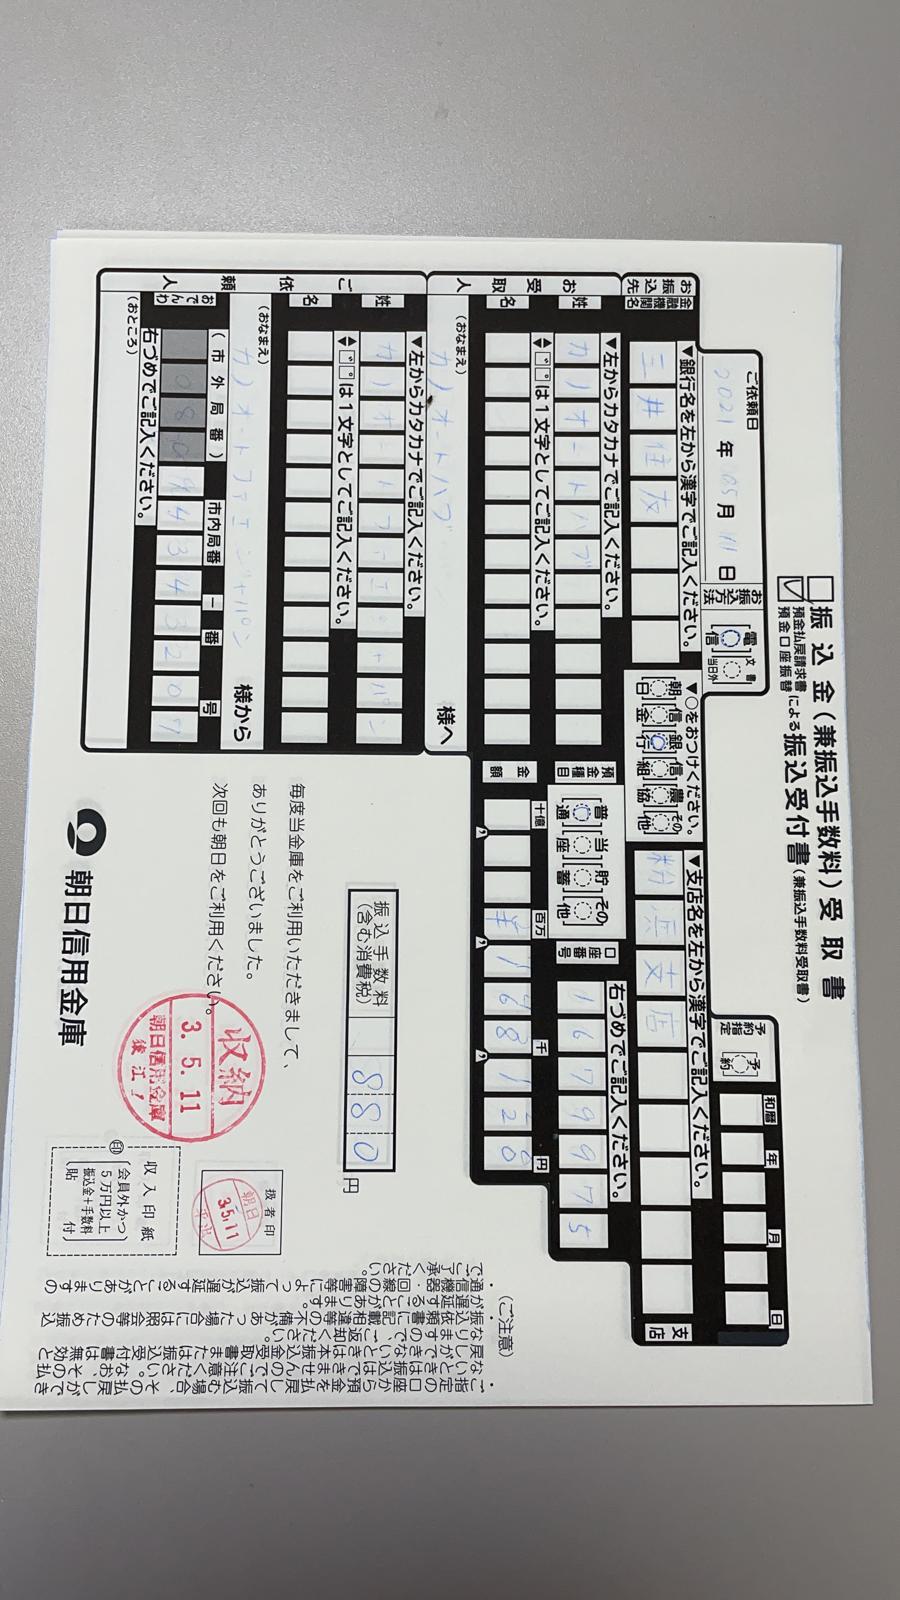 振込金(兼振込手数料)受取書
預金払戻請求書
預金口座振替
による振込受付書(兼振込手数料受取書)
ご依頼日
2021年05月11日
お振込方法
電信
文書
当日外
予約指定
予約
和暦 年 月 日
お振込先
金融機関名
▼銀行名を左から漢字でご記入ください。
三井住友
▼○をおつけください。
朝日 信金 銀行 信組 農協 その他
▼支店名を左から漢字でご記入ください。
粉浜支店
支店
お受取人
姓
▼左からカタカナでご記入ください。
カ)オートハブ
預金種目
普通 当座 貯蓄 その他
口座番号
右づめでご記入ください。
1679975
名
▲▼゛゜は1文字としてご記入ください。
金額
十億 百万 千 円
¥168120
(おなまえ)
カ)オートハブ
様へ
ご依頼人
姓
▼左からカタカナでご記入ください。
カ)オートファエンジャパン
名
▲▼゛゜は1文字としてご記入ください。
(おなまえ)
カ)オートファエンジャパン
様から
おでんわ
(市外局番) 市内局番 ー 番号
右づめでご記入ください。
(おところ)
振込手数料
(含む消費税)
880円
毎度当金庫をご利用いただきまして、
ありがとうございました。
次回も朝日をご利用ください。
収納
3. 5. 11
朝日信用金庫
猿江
扱者印
朝日
3.5.11
収入印紙
会員外かつ
5万円以上
振込金+手数料
貼付
印
朝日信用金庫
(ご注意)
・ご指定の口座から預金を払戻して振込む場合、その払戻しができ
ないときは振込はできませんのでご注意ください。なお、その払
戻しができないときは本振込金受取書または振込受付書は無効と
なりますので、ご返却ください。
・振込依頼書に記載相違等の不備があった場合には照会等のため振込
が遅延することがあります。
・通信機器・回線の障害等によって振込が遅延することがありますの
でご了承ください。